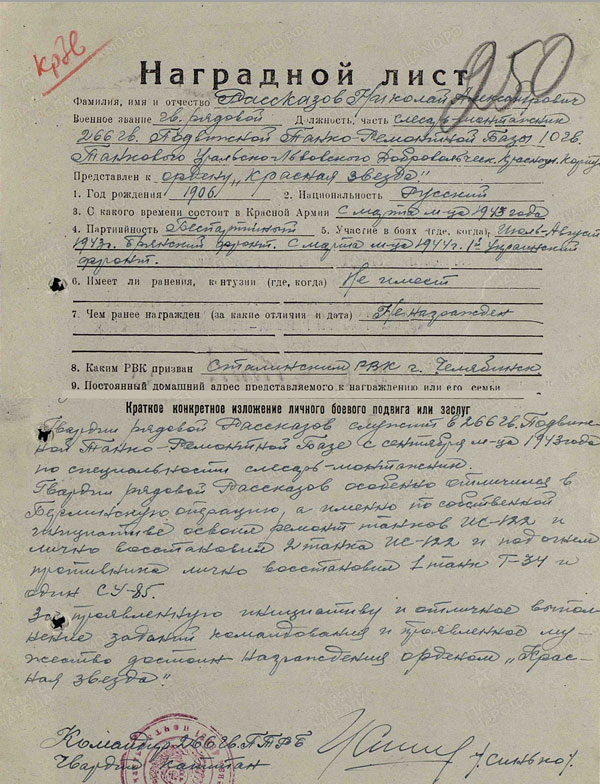 КрЗв
950
Наградной лист
Фамилия, имя и отчество Рассказов Николай Александрович
Военное звание гв. рядовой Должность, часть слесарь-монтажник
266 гв. Подвижной Танко-Ремонтной Базы 10 гв.
Танкового Уральско-Львовского Добровольческ. Краснозн. Корпуса
Представлен к ордену „Красная звезда"
1. Год рождения 1906 2. Национальность Русский
3. С какого времени состоит в Красной Армии С марта м-ца 1943 года
4. Партийность Беспартийный 5. Участие в боях (где, когда) Июль-Август
1943 г. Брянский фронт. С марта м-ца 1944 г. 1й Украинский
фронт.
6. Имеет ли ранения, контузии (где, когда) Не имеет
7. Чем ранее награжден (за какие отличия и дата) Не награжден
8. Каким РВК призван Сталинским РВК г. Челябинск
9. Постоянный домашний адрес представляемого к награждению или его семьи
Краткое конкретное изложение личного боевого подвига или заслуг
Гвардии рядовой Рассказов служит в 266 гв. Подвиж-
ной Танко-Ремонтной Базе с сентября м-ца 1943 года
по специальности слесарь-монтажник.
Гвардии рядовой Рассказов особенно отличился в
операцию, а именно по собственной
инициативе освоил ремонт танков ИС-122 и
лично восстановил 2 танка ИС-122 и под огнем
противника лично восстановил 1 танк Т-34 и
один СУ-85.
За проявленную инициативу и отличное выпол-
нение заданий командования и проявленное му-
жество достоин награждения орденом „Крас-
ная звезда".
Командир 266 гв. ПТРБ
Гвардии капитан /Синько/